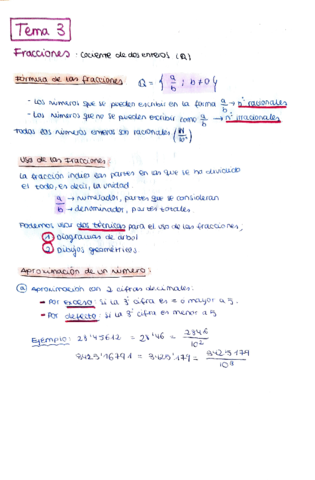 Tema 3
Fracciones · Cociente de dos enteros (Q)
Fórmula de las fracciones Q = { a/b ; b ≠ 0 }
- Los números que se pueden escribir en la forma a/b → nº racionales
- Los números que no se pueden escribir como a/b → nº irracionales
Todos los números enteros son racionales
Uso de las Fracciones:
La fracción indica las partes en las que se ha dividido
el todo, es decir, la unidad.
a → numerador, partes que se consideran
b → denominador, partes totales
Podemos usar dos técnicas para el uso de las fracciones:
1 Diagramas de árbol
2 Dibujos geométricos
Aproximación de un número:
a Aproximación con 2 cifras decimales:
- Por exceso: si la 3ª cifra es = o mayor a 5.
- Por defecto: si la 3ª cifra es menor a 5
Ejemplo: 23'45612 = 23'46 = 2346/10²